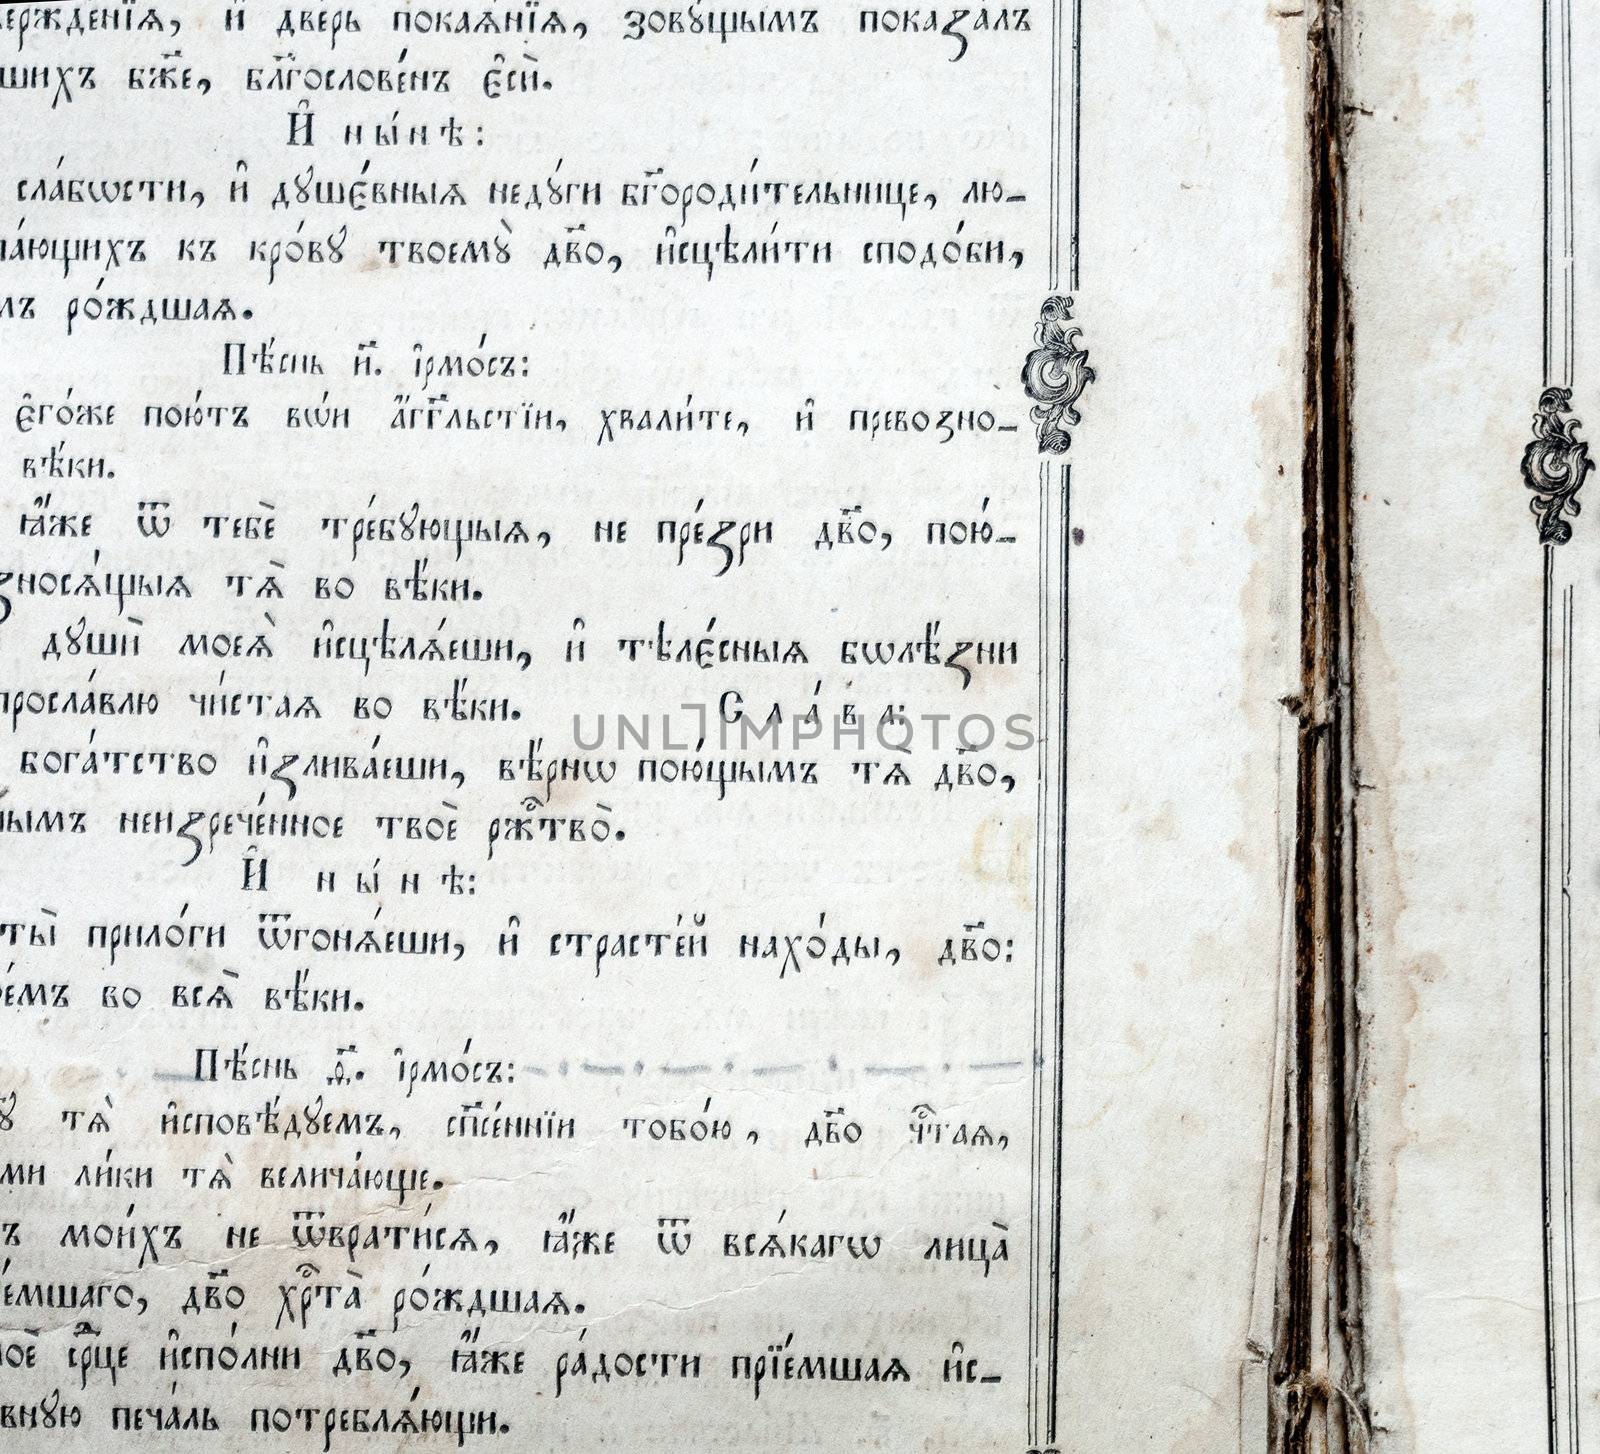 и҆ две́рь покаѧ́нїѧ, зовꙋ́щымъ показа́лъ
бж҃е, бл҃гослове́нъ є҆сѝ.
И҆ ны́нѣ:
сла́бѡсти, и҆ дꙋшє́вныѧ недꙋ́ги бг҃ороди́тельнице, лю-
къ кро́вꙋ твоемꙋ̀ дв҃о, и҆сцѣли́ти сподо́би,
ро́ждшаѧ.
Пѣ́снь и҃. і҆рмо́съ:
є҆го́же пою́тъ во́и а҆́гг҃льстїи, хвали́те, и҆ превозно-
вѣ́ки.
ꙗ҆́же ѿ тебѐ тре́бꙋющыѧ, не пре́зри дв҃о, пою́-
зносѧ́щыѧ тѧ̀ во вѣ́ки.
дꙋшѝ моеѧ̀ и҆сцѣлѧ́еши, и҆ тѣлє́сныѧ бѡлѣ́зни
просла́влю чи́стаѧ во вѣ́ки. Сла́ва:
UNLIMPHOTOS
бога́тство и҆злива́еши, вѣ́рнѡ пою́щымъ тѧ̀ дв҃о,
неизрече́нное твоѐ рж҇тво̀.
И҆ ны́нѣ:
ты̀ прило́ги ѿгонѧ́еши, и҆ страсте́й нахо́ды, дв҃о:
во всѧ̀ вѣ́ки.
Пѣ́снь ѳ҃. і҆рмо́съ:
тѧ̀ и҆сповѣ́дꙋемъ, сп҃се́ннїи тобо́ю, дв҃о ч҇таѧ,
ли́ки тѧ̀ велича́юще.
мои́хъ не ѿврати́сѧ, ꙗ҆́же ѿ всѧ́кагѡ лица̀
дв҃о хр҇та̀ ро́ждшаѧ.
ср҇це и҆спо́лни дв҃о, ꙗ҆́же ра́дости прїе́мшаѧ и҆с-
печа́ль потреблѧ́ющи.